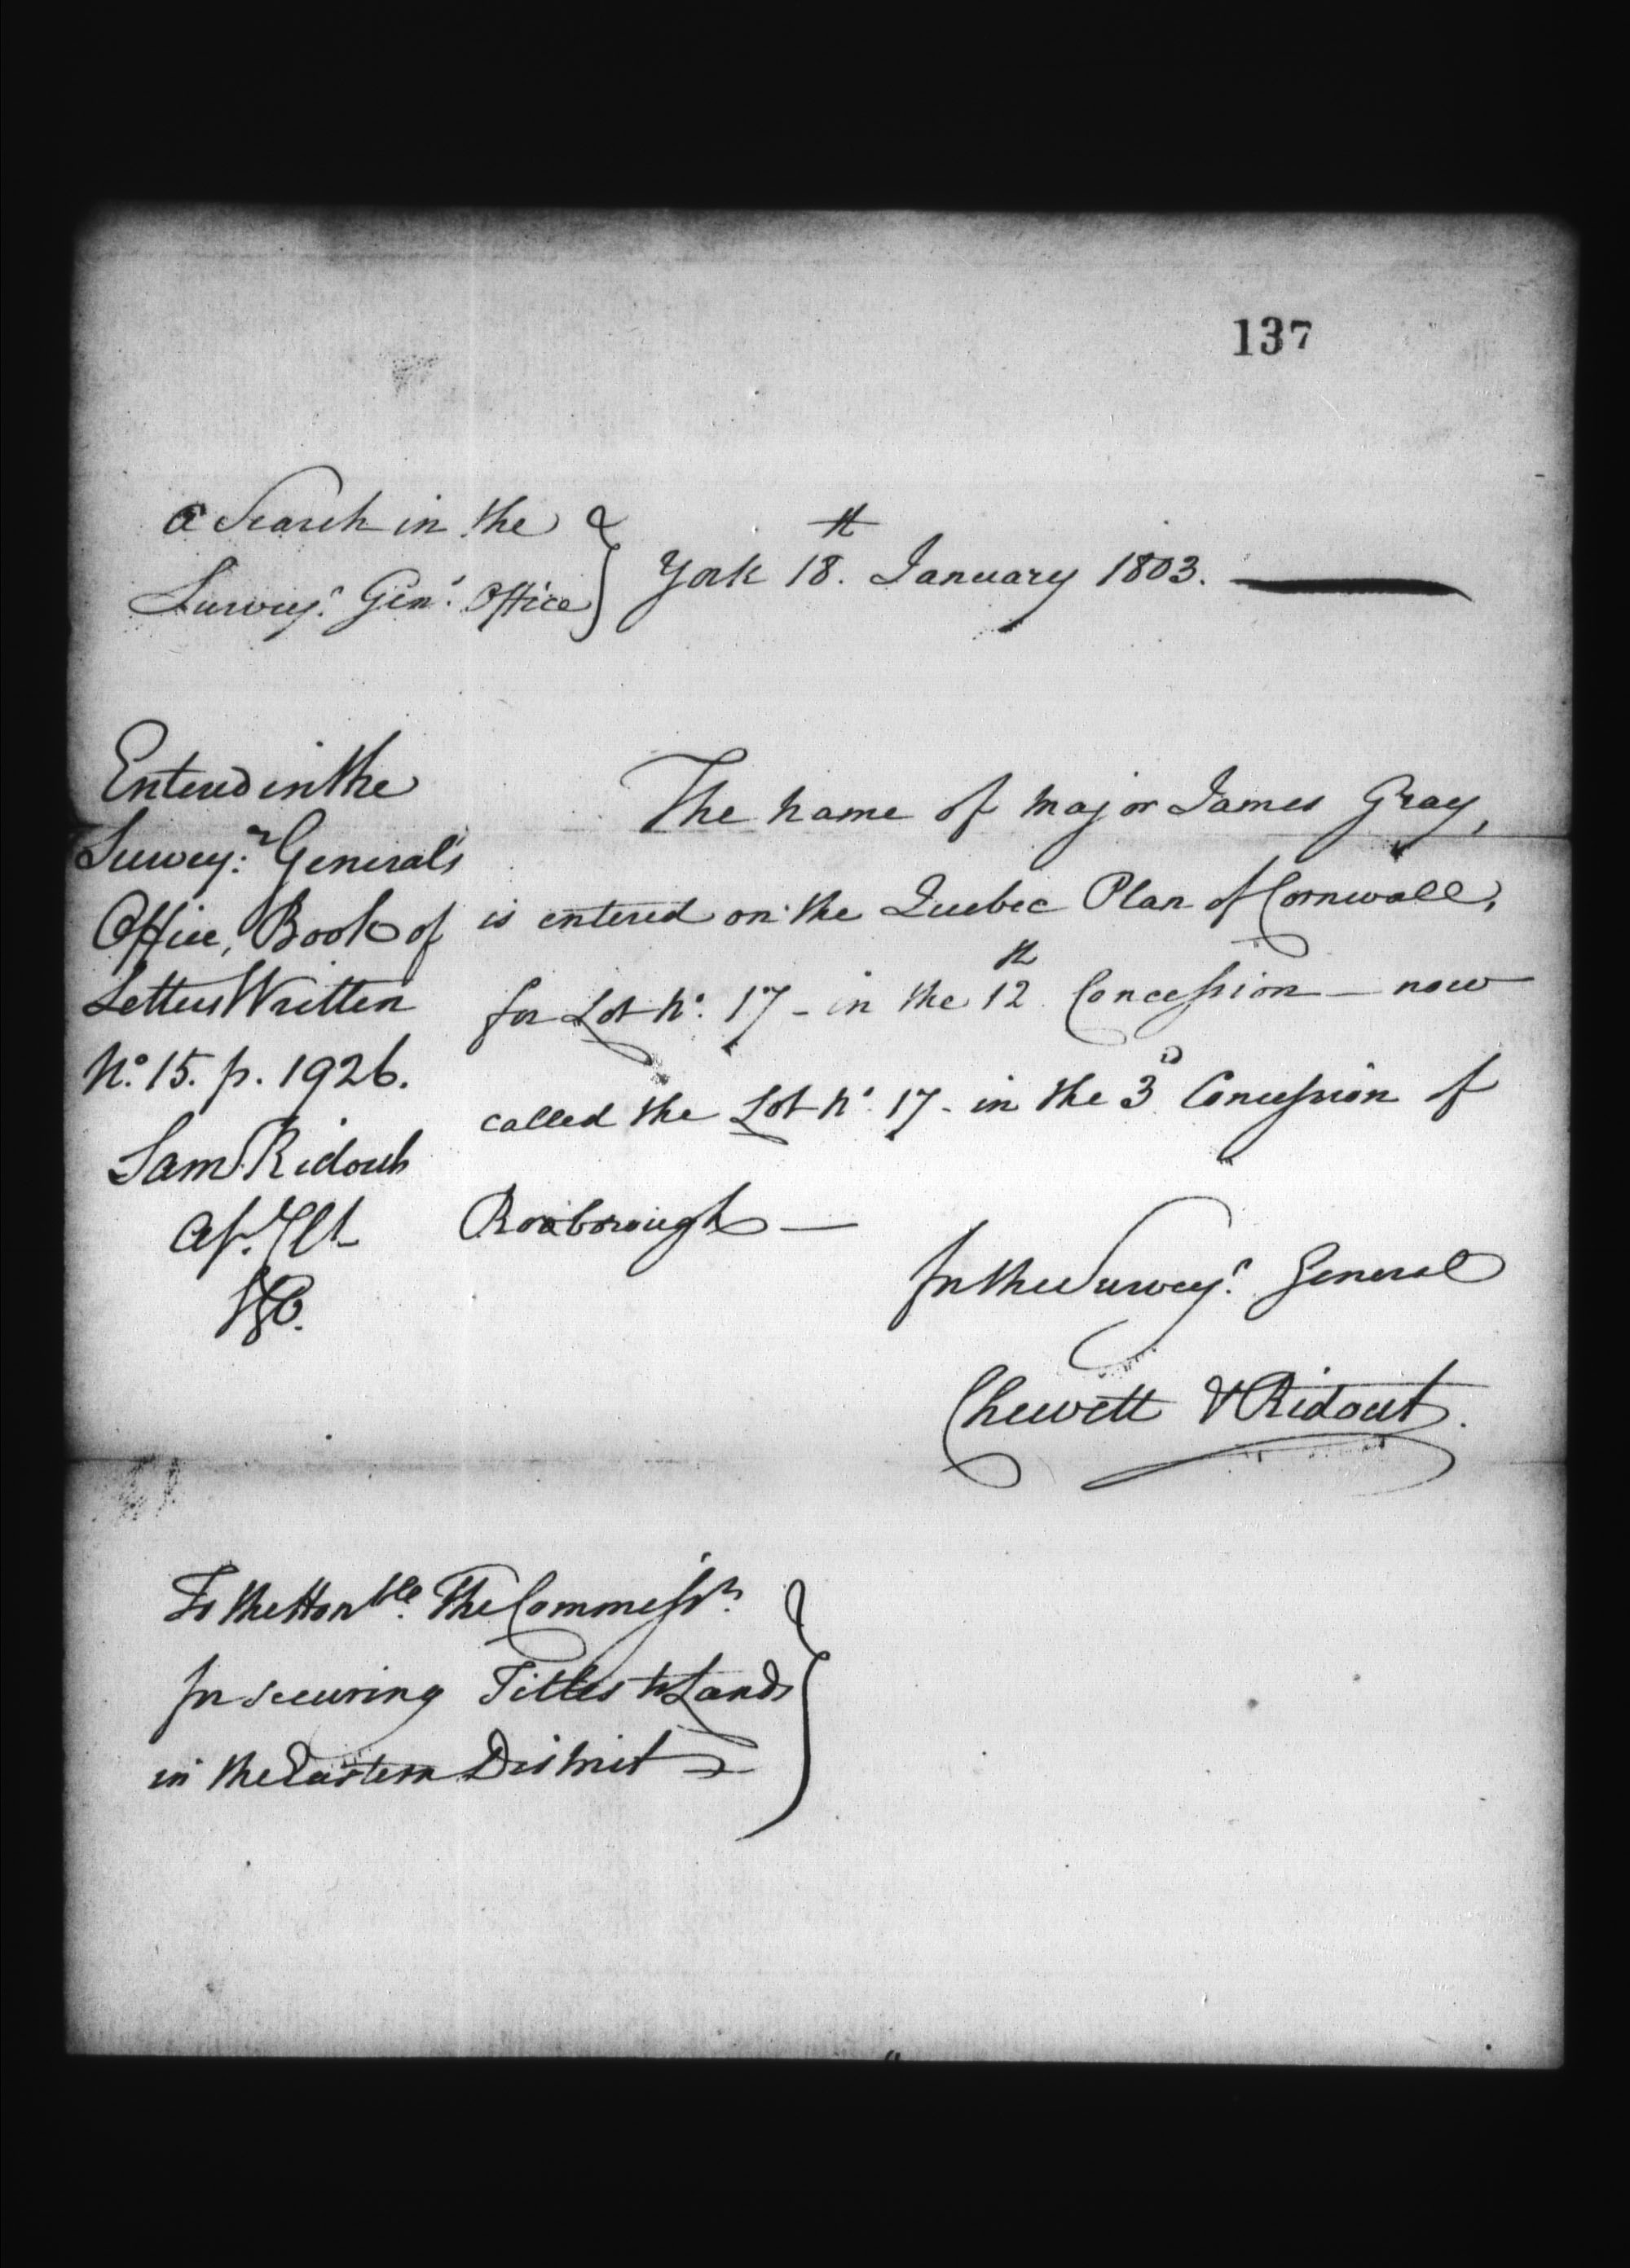 137
a Search in the
Survey.r Gen.l Office
York 18.th January 1803.
Entered in the
Survey:r General's
Office, Book of
Letters Written
No. 15. p. 1926.
Sam Ridout
The name of Major James Gray,
is entered on the Quebec Plan of Cornwall,
for Lot No. 17 - in the 12th Concession - now
called the Lot No. 17 - in the 3d Concession of
Roxborough -
For the Survey.r General
Chewett & Ridout.
To the Honble. The Commissrs.
for securing Titles to Lands
in the Eastern District